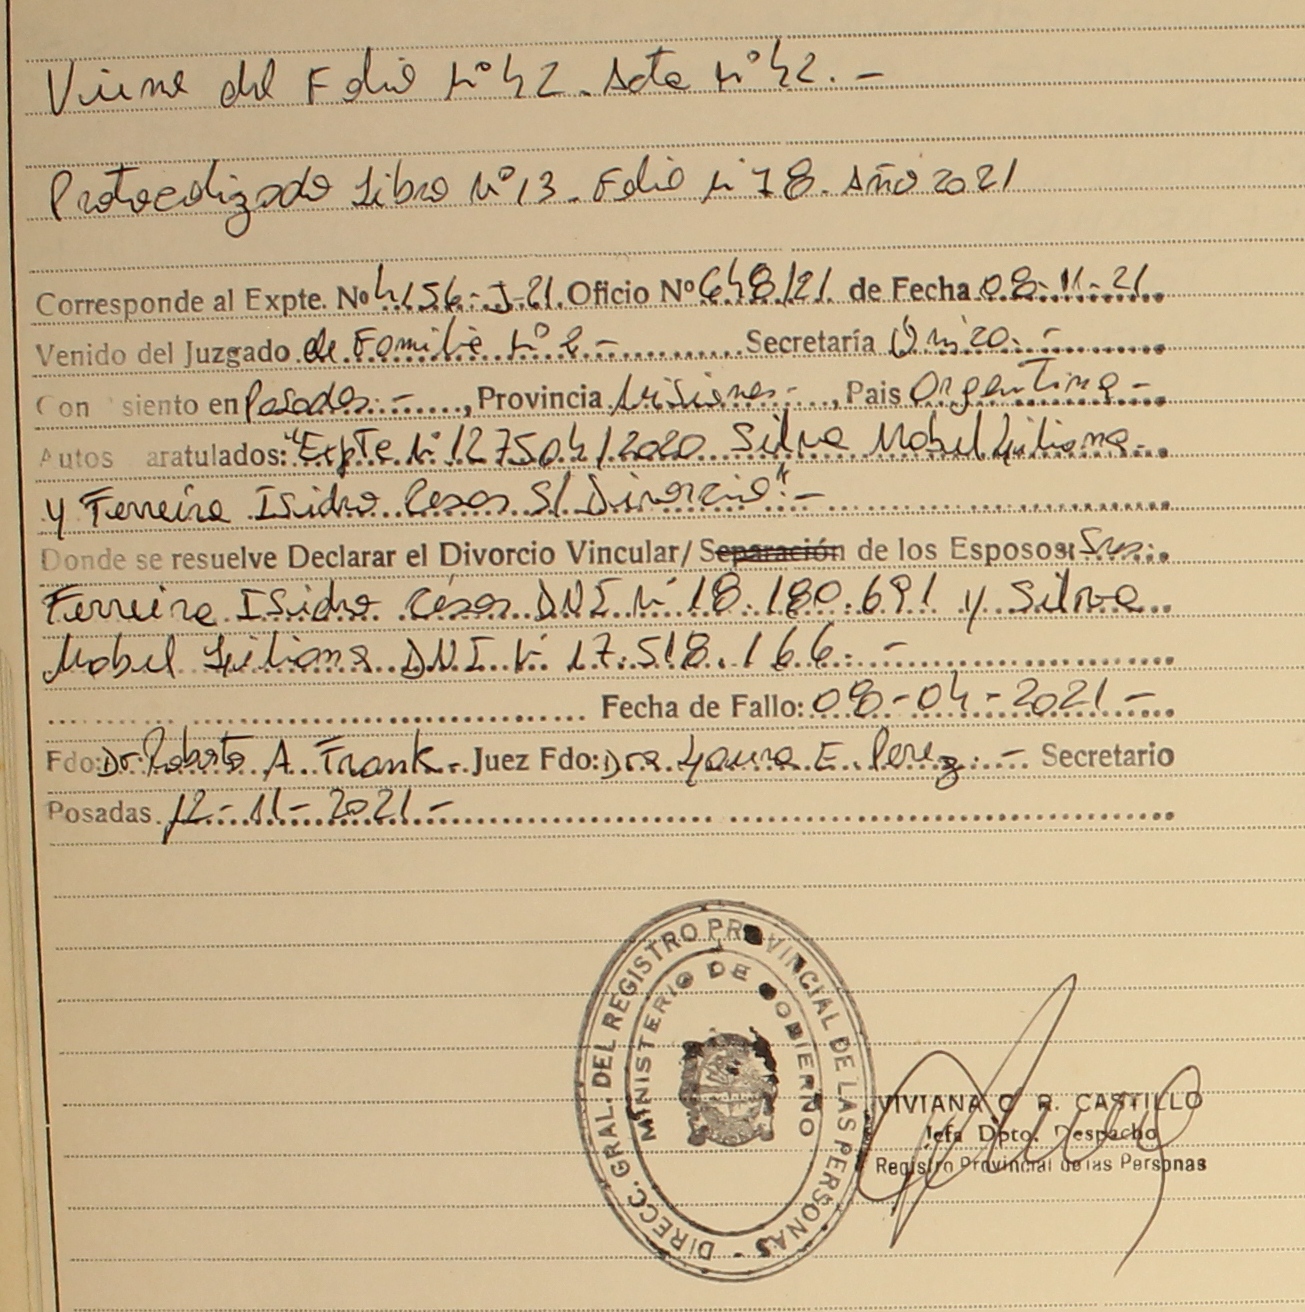 Viene del Folio N° 42. Acta N° 42.-
Protocolizado Libro N° 13. Folio N° 78. Año 2021
Corresponde al Expte. Nº 4156-J-21. Oficio Nº 648/21 de Fecha 08-11-21
Venido del Juzgado de Familia N° 2.- Secretaría Única.-
Con siento en Posadas.-, Provincia Misiones.-, Pais Argentina-
Autos aratulados: "Expte. N° 127504/2020 Silva Mabel Liliana
y Ferreira Isidro Cesar S/ Divorcio".-
Donde se resuelve Declarar el Divorcio Vincular/ Separación de los Esposos: Sres.
Ferreira Isidro César DNI N° 18.180.691 y Silva
Mabel Liliana DNI N° 17.518.166.-
Fecha de Fallo: 08-04-2021-
Fdo: Dr. Roberto A. Frank. Juez Fdo: Dra. Laura E. Perez.- Secretario
Posadas. 12-11-2021-
DIRECC. GRAL. DEL REGISTRO PROVINCIAL DE LAS PERSONAS
MINISTERIO DE GOBIERNO
VIVIANA R. CASTILLO
Jefa Dpto. Despacho
Registro Provincial de las Personas